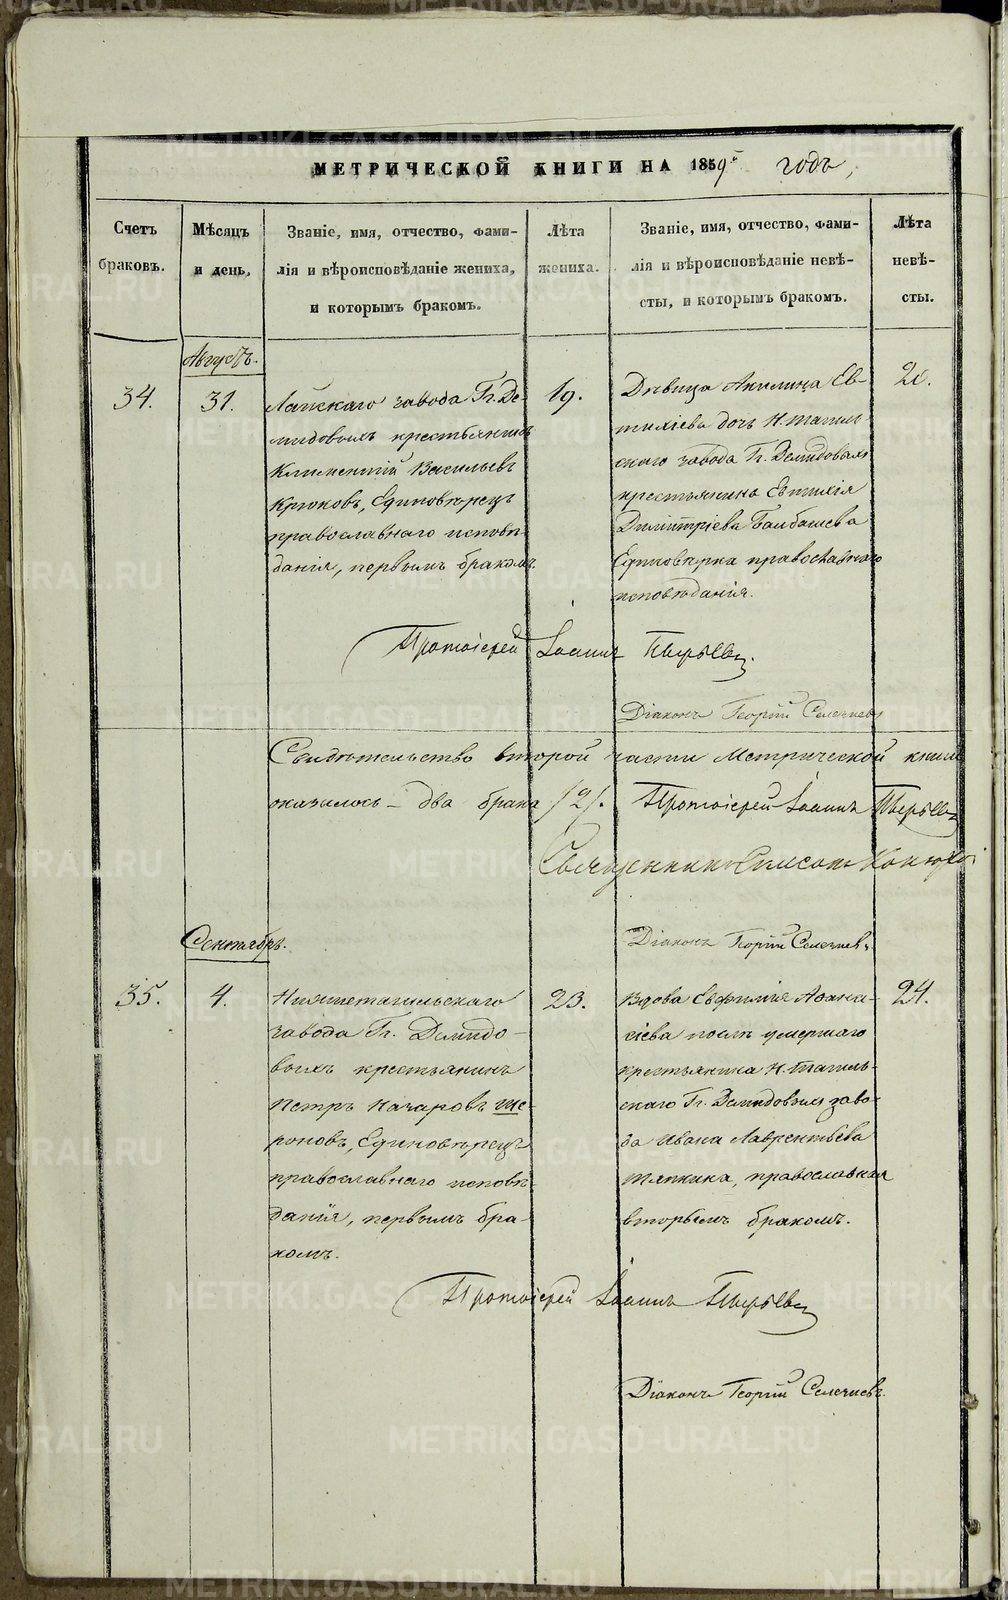 МЕТРИЧЕСКОЙ КНИГИ НА 1859й годъ,
Счетъ
браковъ.
Мѣсяцъ
и день.
Званіе, имя, отчество, фами-
лія и вѣроисповѣданіе жениха,
и которымъ бракомъ.
Лѣта
жениха.
Званіе, имя, отчество, фами-
лія и вѣроисповѣданіе невѣ-
сты, и которымъ бракомъ.
Лѣта
невѣ-
сты.
Августъ.
34.
31.
Лайскаго завода Гг. Де-
мидовыхъ крестьянинъ
Климентій Васильевъ
Крюковъ, Единовѣрецъ
православнаго исповѣ-
данія, первымъ бракомъ.
19.
Дѣвица Акилина Ев-
тихіева дочь Н. Тагиль
скаго завода Гг. Демидовыхъ
крестьянина Евтихія
Димитріева
Единовѣрка православнаго
исповѣданія.
20.
Протоіерей Іоаннъ Пырьевъ.
Діаконъ Георгій Селечиевъ
Свидѣтельство второй части Метрической книги
оказалось - два брака /2/. Протоіерей Іоаннъ Пырьевъ
Священникъ Симеонъ
Сентябрь.
Діаконъ Георгій Селечиевъ.
35.
4.
Нижнетагильскаго
завода Гг. Демидо-
выхъ крестьянинъ
Петръ Назаровъ Ше-
роновъ, Единовѣрецъ
православнаго исповѣ
данія, первымъ бра-
комъ.
23.
Вдова Евфимія Аѳана-
сіева послѣ умершаго
крестьянина Н. Тагиль-
скаго Гг. Демидовыхъ заво-
да Ивана Лаврентьева
Тяпкина, православная
вторымъ бракомъ.
24.
Протоіерей Іоаннъ Пырьевъ
Діаконъ Георгій Селечиевъ.
METRIKI.GASO-URAL.RU